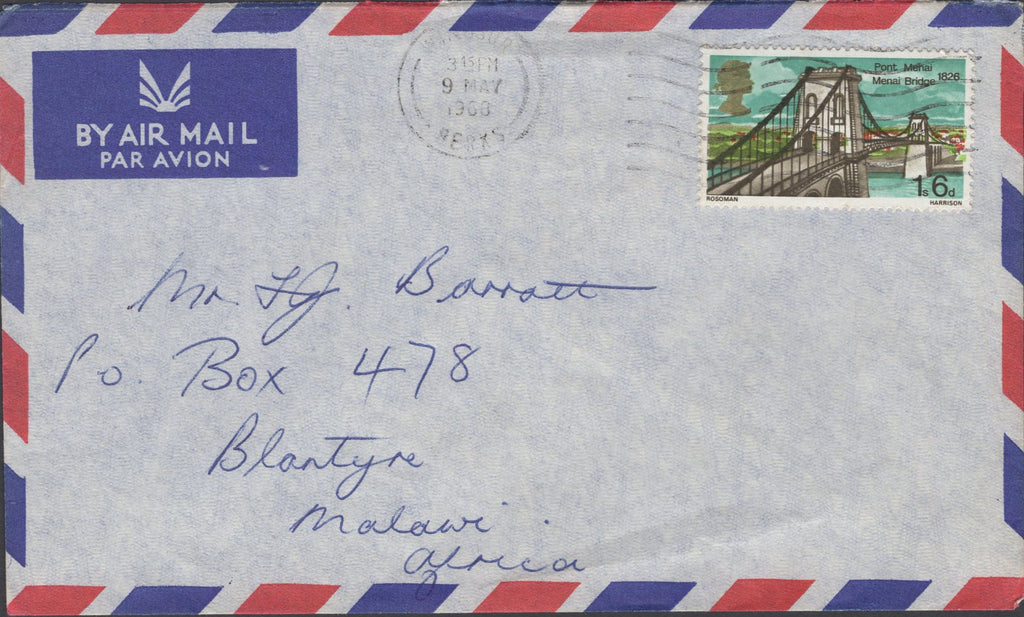 BY AIR MAIL
PAR AVION
3 15 PM
9 MAY
1968
BERKS
Pont Menai
Menai Bridge 1826
1s 6d
ROSOMAN
HARRISON
Mr. F.J. Barratt
P.o. Box 478
Blantyre
Malawi.
Africa